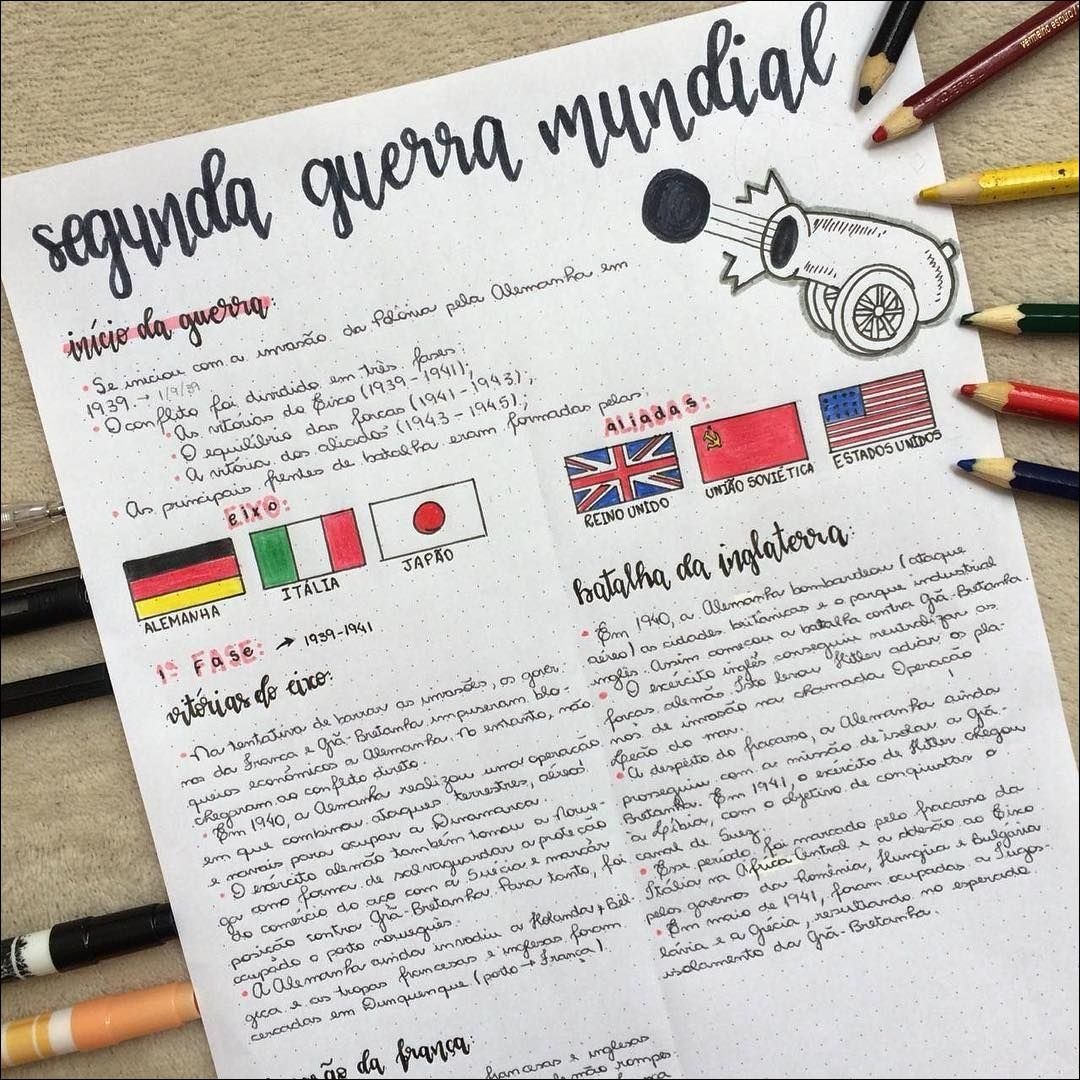 segunda guerra mundial
início da guerra:
• Se iniciou com a invasão da Polônia pela Alemanha em
1939. → 1/9/39
• O conflito foi dividido em três fases:
• As vitórias do Eixo (1939-1941);
O equilíbrio das forças (1941-1943);
A vitória dos aliados (1943-1945);
• As principais frentes de batalha eram formadas pelas:
eixo:
ALEMANHA
ITÁLIA
JAPÃO
aliadas:
REINO UNIDO
UNIÃO SOVIÉTICA
ESTADOS UNIDOS
1ª Fase: → 1939-1941
vitórias do eixo:
• Na tentativa de barrar as invasões, os gover-
nos da França e Grã-Bretanha impuseram blo-
queios econômicos a Alemanha. No entanto, não
chegaram ao conflito direto.
• Em 1940, a Alemanha realizou uma operação
em que combinou ataques terrestres, aéreos
e navais para ocupar a Dinamarca.
• O exército alemão também tomou a Norue-
ga como forma de salvaguardar a proteção
do comércio do aço com a Suécia e marcar
posição contra Grã-Bretanha. Para tanto, foi
ocupado o porto norueguês.
• A Alemanha ainda invadiu a Holanda, Bél-
gica e as tropas francesas e inglesas foram
cercadas em Dunquerque (porto → França).
da frança:
francesas e inglesas
rompes-
batalha da inglaterra:
• Em 1940, a Alemanha bombardeou (ataque
aéreo) as cidades britânicas e o parque industrial
inglês. Assim começou a batalha contra Grã-Bretanha.
• O exército inglês conseguiu neutralizar as
forças alemãs. Isto levou Hitler adiar os pla-
nos de invasão na chamada Operação
Leão do mar.
• A despeito do fracasso, a Alemanha ainda
prosseguiu com a missão de isolar a Grã-
Bretanha. Em 1941, o exército de Hitler chegou
a Líbia, com o objetivo de conquistas o
canal de Suez.
• Esse período foi marcado pelo fracasso da
Itália na África Central e a adesão ao Eixo
pelos governos da Romênia, Hungria e Bulgária.
• Em maio de 1941, foram ocupadas a Iugos-
lávia e a Grécia, resultando no esperado
isolamento da Grã-Bretanha.
vermelho escuro